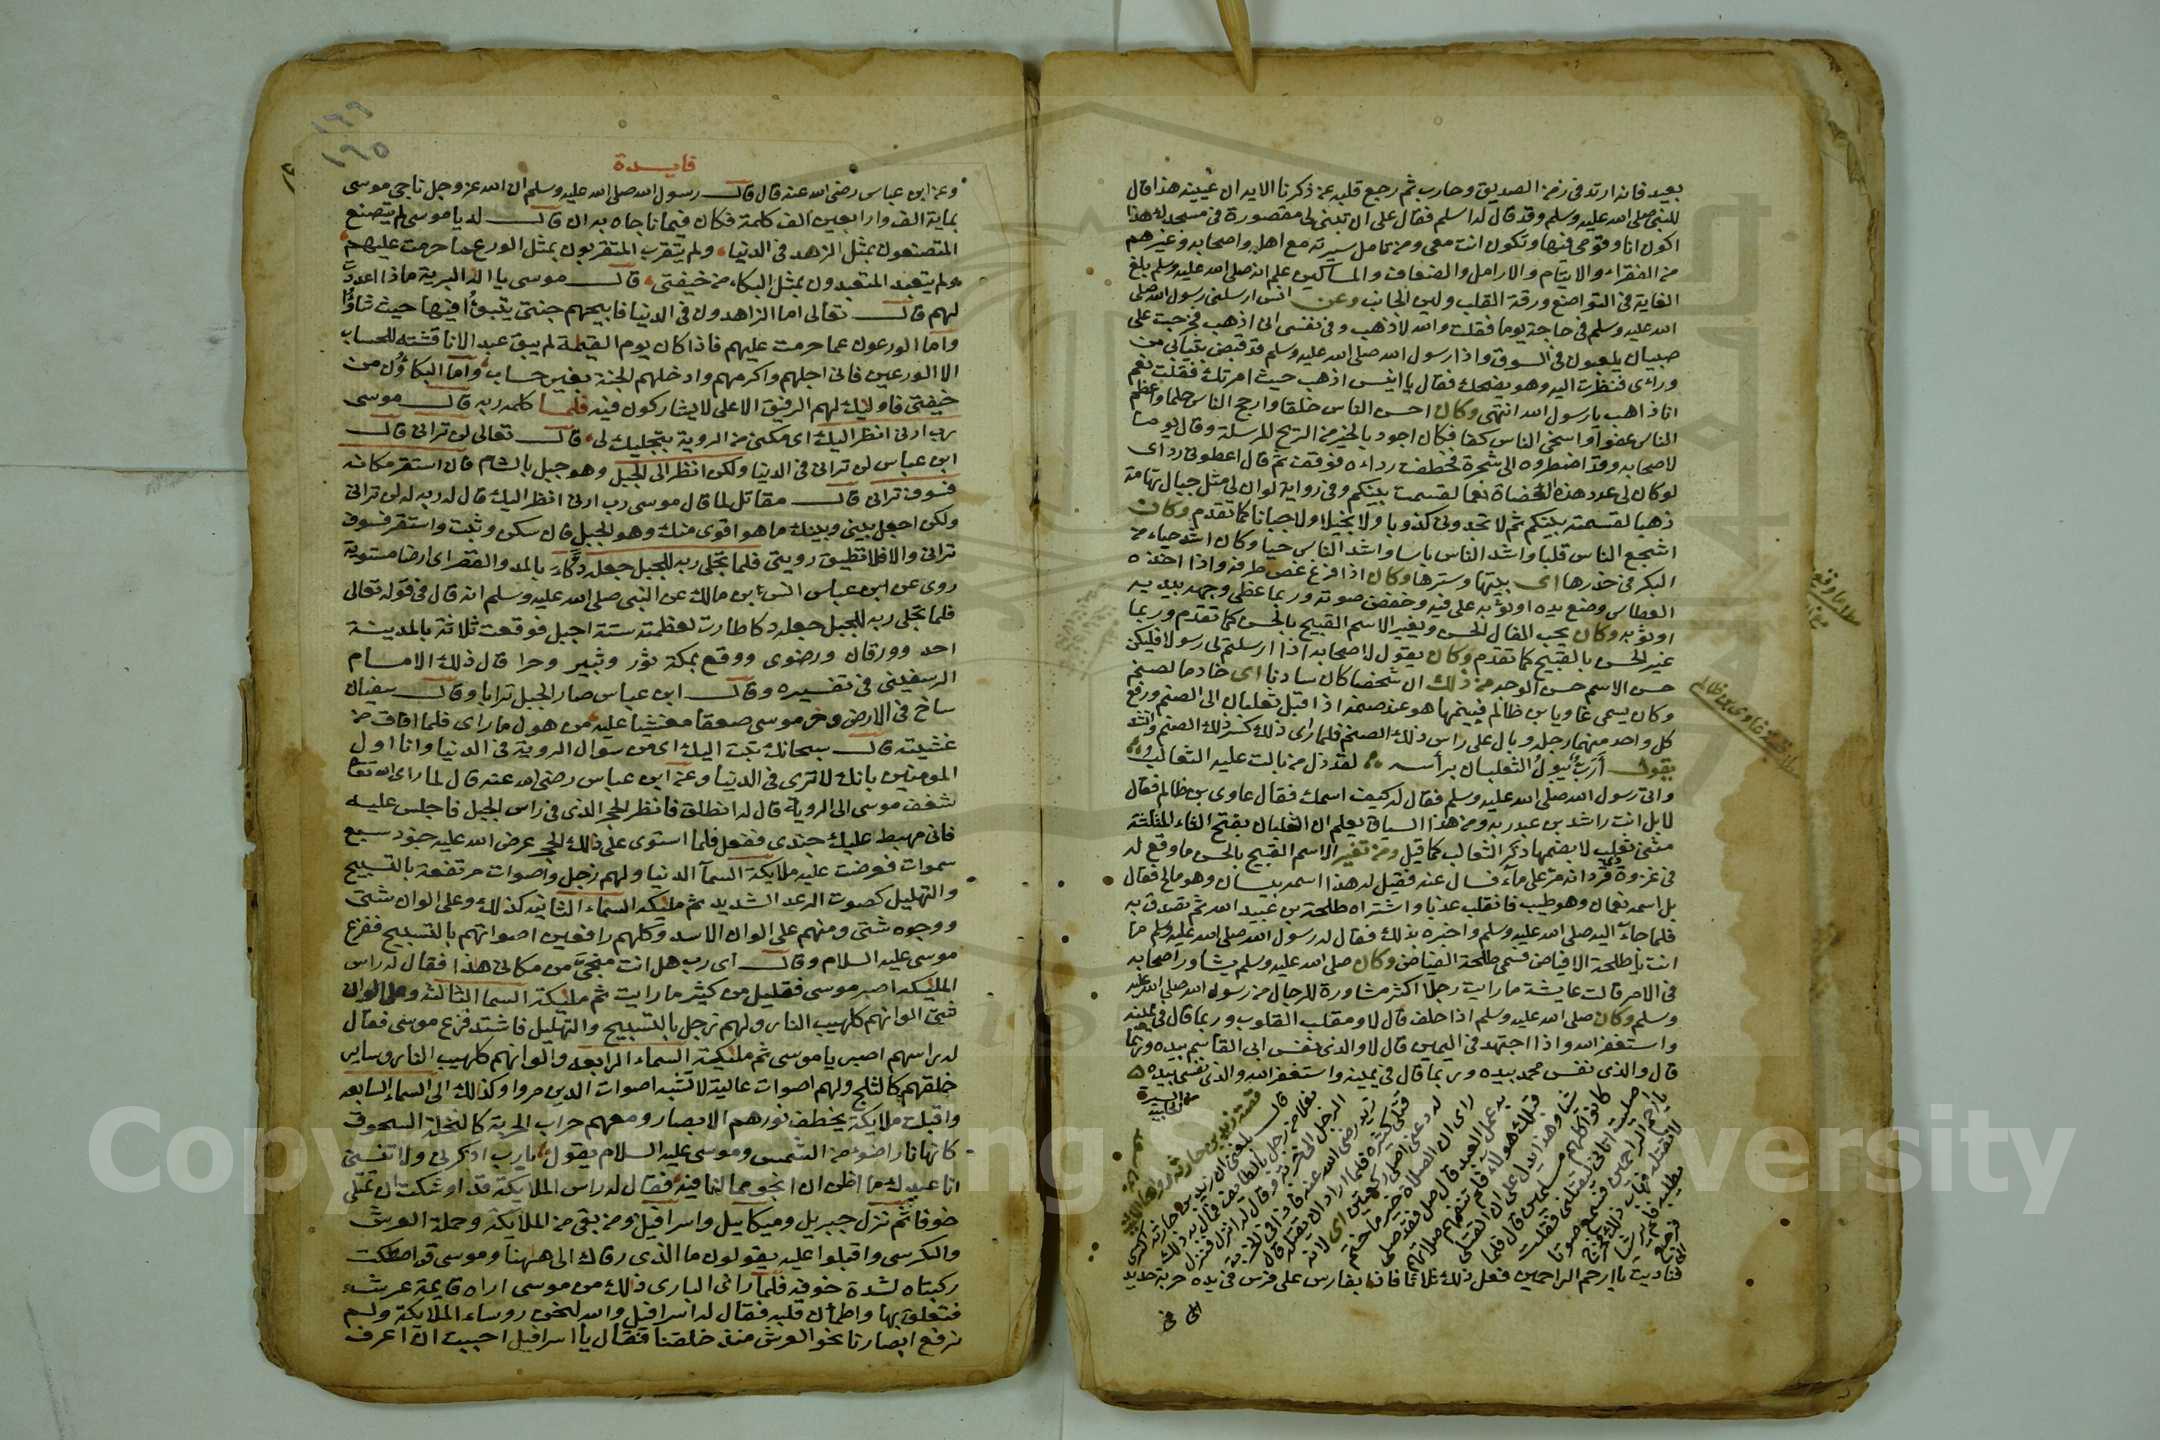 بعيد فانه ارتد في زمن الصديق وحارب ثم رجع قلبه عن ذكرنا الايه ان عيينه هذا قال
للنبي صلى الله عليه وسلم وقد قال له اسلم فقال على ان تبني لي مقصورة في مسجدك هذا
اكون انا وقومي فيها وتكون انت معي ومن تامل سيرته مع اهله واصحابه وغيرهم
من الفقراء والايتام والارامل والضعاف والمساكين علم انه صلى الله عليه وسلم بلغ
الغاية في التواضع ورقة القلب ولين الجانب وعن انس ارسلني رسول الله صلى
الله عليه وسلم في حاجة يوما فقلت والله لا اذهب وفي نفسي اني اذهب فخرجت على
صبيان يلعبون في السوق واذا رسول الله صلى الله عليه وسلم قد قبض بثيابي من
ورائي فنظرت اليه وهو يضحك فقال يا انيس اذهب حيث امرتك فقلت نعم
انا ذاهب يا رسول الله انتهى وكان احسن الناس خلقا وارجح الناس حلما واعظم
الناس عفوا واسخى الناس كفا فكان اجود بالخير من الريح المرسلة وقال يوما
لاصحابه وقد اضطروه الى شجرة فخطفت رداءه فوقف ثم قال اعطوني رداي
لو كان لي عدد هذه العضاة نعما لقسمت بينكم وفي رواية لو ان لي مثل جبال تهامة
ذهبا لقسمته بينكم ثم لا تجدوني كذوبا ولا بخيلا ولا جبانا كما تقدم وكان
اشجع الناس قلبا واشد الناس باسا واشد الناس حيا وكان اشد حياء من
البكر في خدرها اي بيتها وسترها وكان اذا فزع غض طرفه واذا اخذه
العطاس وضع يده او ثوبه على فيه وخفض صوته وربما غطى وجهه بيديه
او ثوبه وكان يحب الفال الحسن ويغير الاسم القبيح بالحسن كما تقدم وربما
غير الحسن بالقبيح كما تقدم وكان يقول لاصحابه اذا ارسلتم لي رسولا فليكن
حسن الاسم حسن الوجه من ذلك ان شخصا كان سادنا اي خادما لصنم
وكان يسمى غاويا بن ظالم فبينما هو عند صنمه اذ اقبل ثعلبان الى الصنم ورفع
كل واحد منهما رجله وبال على راس ذلك الصنم فلما راى ذلك كسر ذلك الصنم وانشد
يقول أرَبٌّ يبولُ الثعلبان برأسه لقد ذل من بالت عليه الثعالب
واتى رسول الله صلى الله عليه وسلم فقال له كيف اسمك فقال غاوي بن ظالم فقال
لا بل انت راشد بن عبد ربه ومن هذا السياق يعلم ان الثعلبان بفتح الثاء المثلثة
مثنى ثعلب لا بضمها ذكر الثعالب كما قيل ومن تغير الاسم القبيح بالحسن ما وقع له
في غزوة ذي قرد انه مر على مآء فسال عنه فقيل له هذا اسمه بيسان وهو مالح فقال
بل اسمه نعمان وهو طيب فانقلب عذبا واشتراه طلحة بن عبيد الله ثم تصدق به
فلما جآء اليه صلى الله عليه وسلم واخبره بذلك فقال له رسول الله صلى الله عليه وسلم ما
انت يا طلحة الا فياض فسمى طلحة الفياض وكان صلى الله عليه وسلم يشاور اصحابه
في الامر قالت عايشة ما رايت رجلا اكثر مشاورة للرجال من رسول الله صلى الله عليه
وسلم وكان صلى الله عليه وسلم اذا حلف قال لا ومقلب القلوب وربما قال في يمينه
واستغفر الله واذا اجتهد في اليمين قال لا والذي نفس ابي القاسم بيده وربما
قال والذي نفس محمد بيده وربما قال في يمينه واستغفر الله والذي نفسي بيده
من السيرة الحلبية
قال بلغني ان زيد بن حارثة اكترى
بغلا من رجل بالطايف
الرجل الى خربة وقال له انزل فنزل
فاذا في الخربة
قتلى كثيرة فلما اراد ان يقتله قال
له دعني اصلي ركعتين
راى ان الصلاة خير ما ختم
به عمل العبد قال صل فقد صلى
قبلك هؤلاء فلم تنفعهم صلاتهم
كانوا كلهم مسلمين قال فلما
صليت اتاني ليقتلني فقلت
يا ارحم الراحمين فسمع صوتا
لا تقتله فهاب ذلك فخرج
يطلبه فلم ير شيا
فرجع الي
فناديت يا ارحم الراحمين فعل ذلك ثلاثا فاذا بفارس على فرس في يده حربة حديد
١٩٩
١٩٥
فايدة
وعن ابن عباس رضي الله عنه قال قال رسول الله صلى الله عليه وسلم ان الله عز وجل ناجى موسى
بماية الف واربعين الف كلمة فكان فيما ناجاه به ان قال له يا موسى لم يتصنع
المتصنعون بمثل الزهد في الدنيا ولم يتقرب المتقربون بمثل الورع عما حرمت عليهم
ولم يتعبد المتعبدون بمثل البكاء من خيفتي قال موسى يا اله البرية ماذا اعددت
لهم قال تعالى اما الزاهدون في الدنيا فابيحهم جنتي يتبوؤا فيها حيث شاؤا
واما الورعون عما حرمت عليهم فاذا كان يوم القيمة لم يبق عبد الا ناقشته للحساب
الا الورعين فاني اجلهم واكرمهم وادخلهم الجنة بغير حساب واما البكاؤن من
خيفتي فاوليك لهم الرفيق الاعلى لا يشاركون فيه فلما كلمه ربه قال موسى
رب ارني انظر اليك اي مكني من الروية بتجليك لي قال تعالى لن تراني قال
ابن عباس لن تراني في الدنيا ولكن انظر الى الجبل وهو جبل بالشام فان استقر مكانه
فسوف تراني قال مقاتل لما قال موسى رب ارني انظر اليك قال له ربه له لن تراني
ولكن اجعل بيني وبينك ما هو اقوى منك وهو الجبل فان سكن وثبت واستقر فسوف
تراني والا فلا تطيق رويتي فلما تجلى ربه للجبل جعله دكّاء بالمد والقصر اي ارضا مستوية
روى عن ابن عباس انس بن مالك عن النبي صلى الله عليه وسلم انه قال في قوله تعالى
فلما تجلى ربه للجبل جعله دكا طارت لعظمته ستة اجبل فوقعت ثلاثة بالمدينة
احد وورقان ورضوى ووقع بمكة ثور وثبير وحرا قال ذلك الامام
الرسغيني في تفسيره وقال ابن عباس صار الجبل ترابا وقال سفيان
ساخ في الارض وخر موسى صعقا مغشيا عليه من هول ما راى فلما افاق من
غشيته قال سبحانك تبت اليك اي من سوال الروية في الدنيا وانا اول
المومنين بانك لا ترى في الدنيا وعن ابن عباس رضي الله عنه قال لما راى الله تعا
شغف موسى الى الروية قال له انطلق فانظر الحجر الذي في راس الجبل فاجلس عليه
فاني مهبط عليك جندي ففعل فلما استوى على ذلك الحجر عرض الله عليه جنود سبع
سموات فعرضت عليه ملايكة السمآ الدنيا ولهم زجل واصوات مرتفعة بالتسبيح
والتهليل كصوت الرعد الشديد ثم مليكة السماء الثانية كذلك وعلى الوان شتى
ووجوه شتى ومنهم على الوان الاسد وكلهم رافعين اصواتهم بالتسبيح ففزع
موسى عليه السلام وقال اى رب هل انت منجيَّ من مكاني هذا فقال له راس
المليكة اصبر موسى فقليل من كثير ما رايت ثم مليكة السما الثالثة وعلى الوان
شتى الوانهم كلهيب النار ولهم زجل بالتسبيح والتهليل فاشتد فزع موسى فقال
له راسهم اصبر يا موسى ثم مليكة السماء الرابعة والوانهم كلهيب النار وساير
خلقهم كالثلج ولهم اصوات عالية لا تشبه اصوات الذين مروا وكذلك الى السماء السابعة
واقبلت ملايكة يخطف نورهم الابصار ومعهم حراب الحربة كالنخلة السحوق
كانها نار اضوء من الشمس وموسى عليه السلام يقول يا رب اذكرني ولا تنسني
انا عبدك ما اظن ان انجو مما انا فيه فقال له راس الملايكة قد اوشكت ان تمتلي
خوفا ثم نزل جبريل وميكاييل واسرافيل ومن بقي من الملايكة وحملة العرش
والكرسي واقبلوا عليه يقولون ما الذي رقاك الى ههنا وموسى قد اصطكت
ركبتاه لشدة خوفه فلما راى البارى ذلك من موسى اراه قايمة عرشه
فتعلق بها واطمأن قلبه فقال له اسرافيل والله لنحن روساء الملايكة ولم
نرفع ابصارنا نحو العرش منذ خلقنا فقال يا اسرافيل احببت ان اعرف
Copy King S University